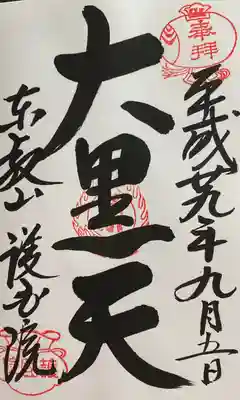 奉拝
平成廿九年九月五日
大黒天
東叡山 護国院